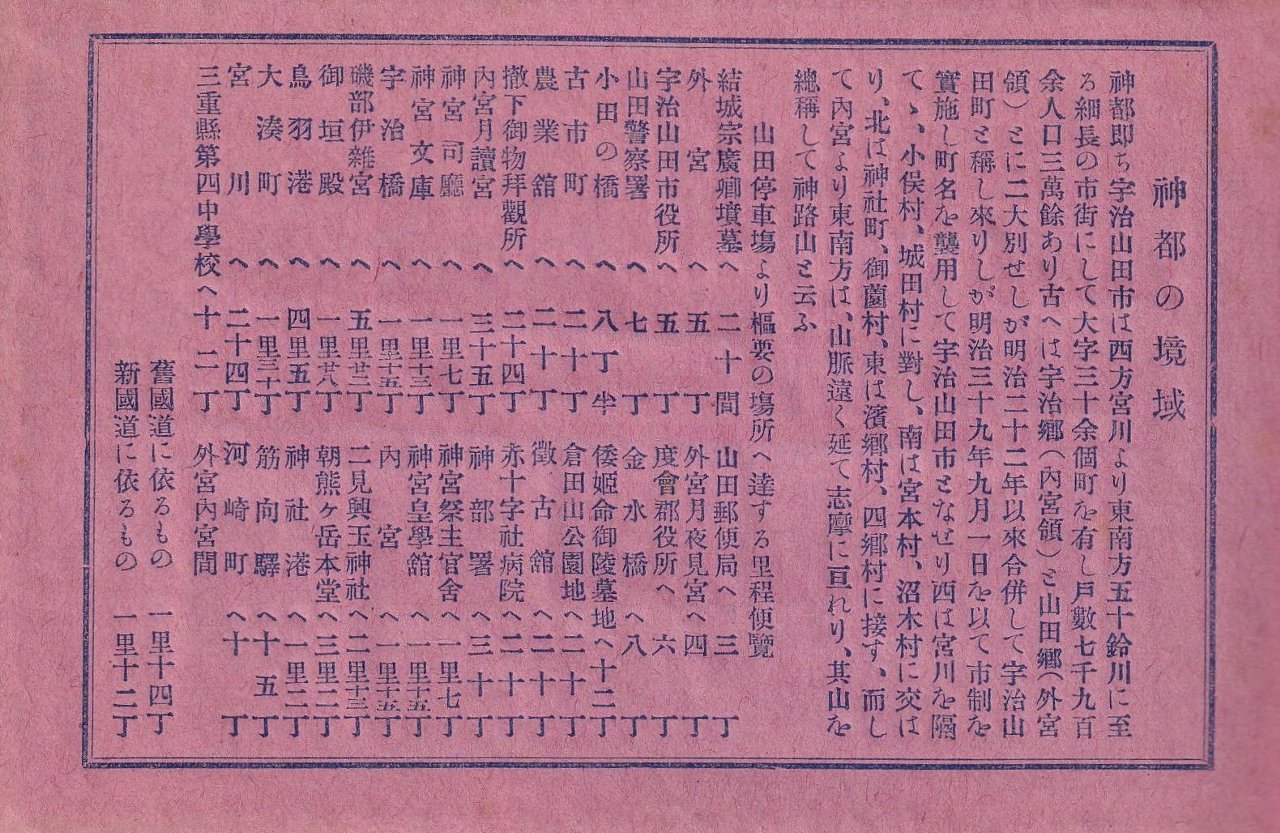 神都の境域
神都即ち宇治山田市は西方宮川より東南方五十鈴川に至
る細長の市街にして大字三十余個町を有し戸數七千九百
余人口三萬餘あり古へは宇治鄕（內宮領）と山田鄕（外宮
領）とに二大別せしが明治二十二年以來合併して宇治山
田町と稱し來りしが明治三十九年九月一日を以て市制を
實施し町名を襲用して宇治山田市となせり西は宮川を隔
てゝ、小俣村、城田村に對し、南は宮本村、沼木村に交は
り、北は神社町、御薗村、東は濱鄕村、四鄕村に接す、而し
て內宮より東南方は、山脈遠く延て志摩に亘れり、其山を
總稱して神路山と云ふ
山田停車塲より樞要の塲所へ達する里程便覽
結城宗廣卿墳墓へ 二十間 山田郵便局へ 三丁
外宮へ 五丁 外宮月夜見宮へ 四丁
宇治山田市役所へ 五丁 度會郡役所へ 六丁
山田警察署へ 七丁 金水橋へ 八丁
小田の橋へ 八丁半 倭姬命御陵墓地へ 十二丁
古市町へ 二十丁 倉田山公園地へ 二十丁
農業舘へ 二十丁 徵古舘へ 二十丁
撤下御物拜觀所へ 二十四丁 赤十字社病院へ 二十丁
內宮月讀宮へ 三十五丁 神部署へ 三十丁
神宮司廳へ 一里七丁 神宮祭主官舍へ 一里七丁
神宮文庫へ 一里十三丁 神宮皇學舘へ 一里十五丁
宇治橋へ 一里十五丁 內宮へ 一里十五丁
磯部伊雜宮へ 五里廿二丁 二見興玉神社へ 二里十三丁
御垣殿へ 一里廿八丁 朝熊ヶ岳本堂へ 三里二丁
鳥羽港へ 四里五丁 神社港へ 一里二丁
大湊町へ 一里三十丁 筋向驛へ 十五丁
宮川へ 二十四丁 河崎町へ 十丁
三重縣第四中學校へ 十二丁 外宮內宮間
舊國道に依るもの 一里十四丁
新國道に依るもの 一里十二丁